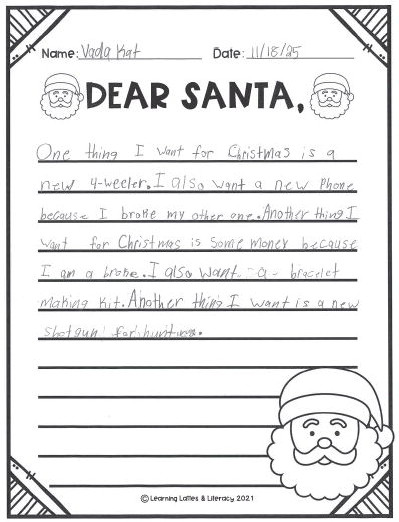 Name: Vada Kat Date: 11/18/25
DEAR SANTA,
One thing I want for Christmas is a
new 4-weeler. I also want a new Phone
because I broke my other one. Another thing I
want for Christmas is some money because
I am a broke. I also want a bracelet
making kit. Another thing I want is a new
shotgun for hunting.
© Learning Lattes & Literacy 2021